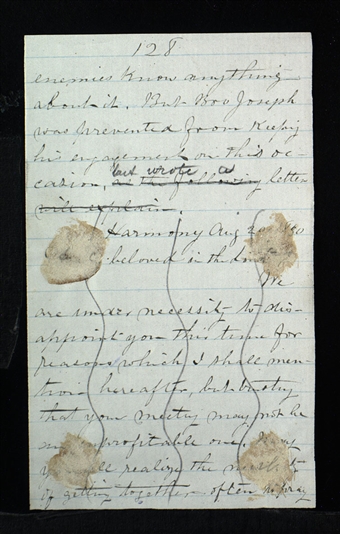 128
enemies know anything
about it. But Bro Joseph
was prevented from keeping
his engagement on this oc-
but wrote as
casion, as the following letter
will explain.
Harmony Aug 20
beloved in the Lord
We
are under necessity to dis-
appoint you this time for
reasons which I shall men-
tion hereafter, but trusty
that your meeting may not be
profitable one,
realize the
of getting together often to pray